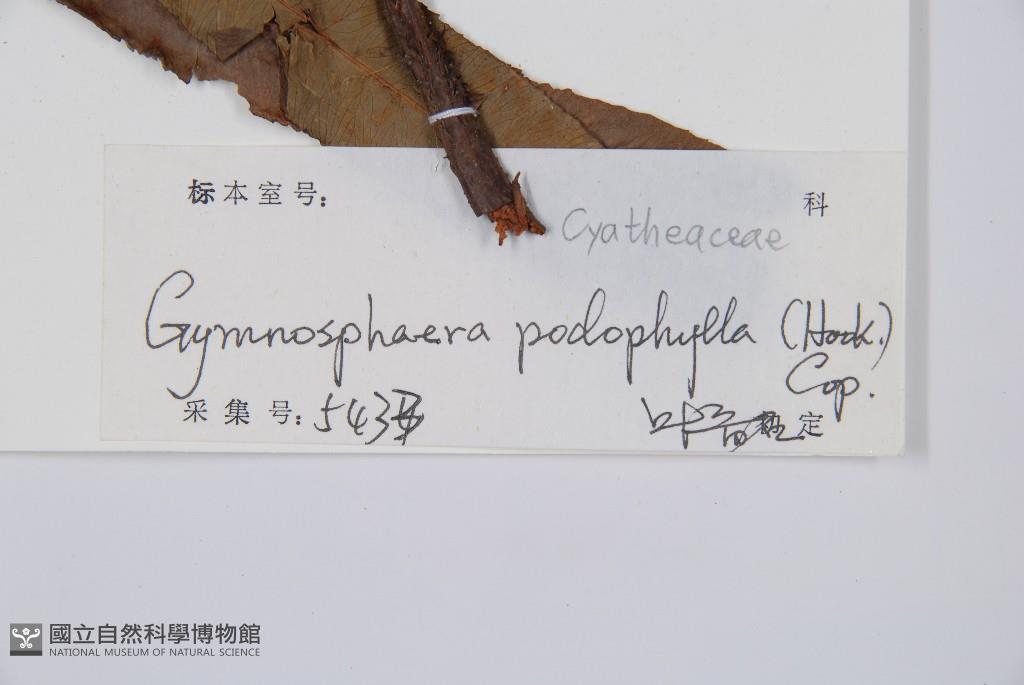 标本室号: 科
Cyatheaceae
Gymnosphaera podophylla (Hook.)
Cop.
采集号: 543 定
國立自然科學博物館
NATIONAL MUSEUM OF NATURAL SCIENCE